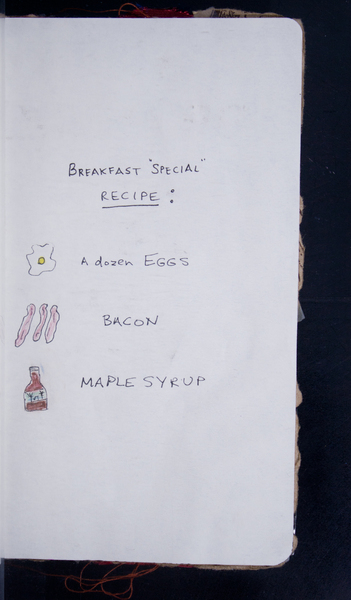 BREAKFAST "SPECIAL"
RECIPE:
A dozen EGGS
BACON
MAPLE SYRUP